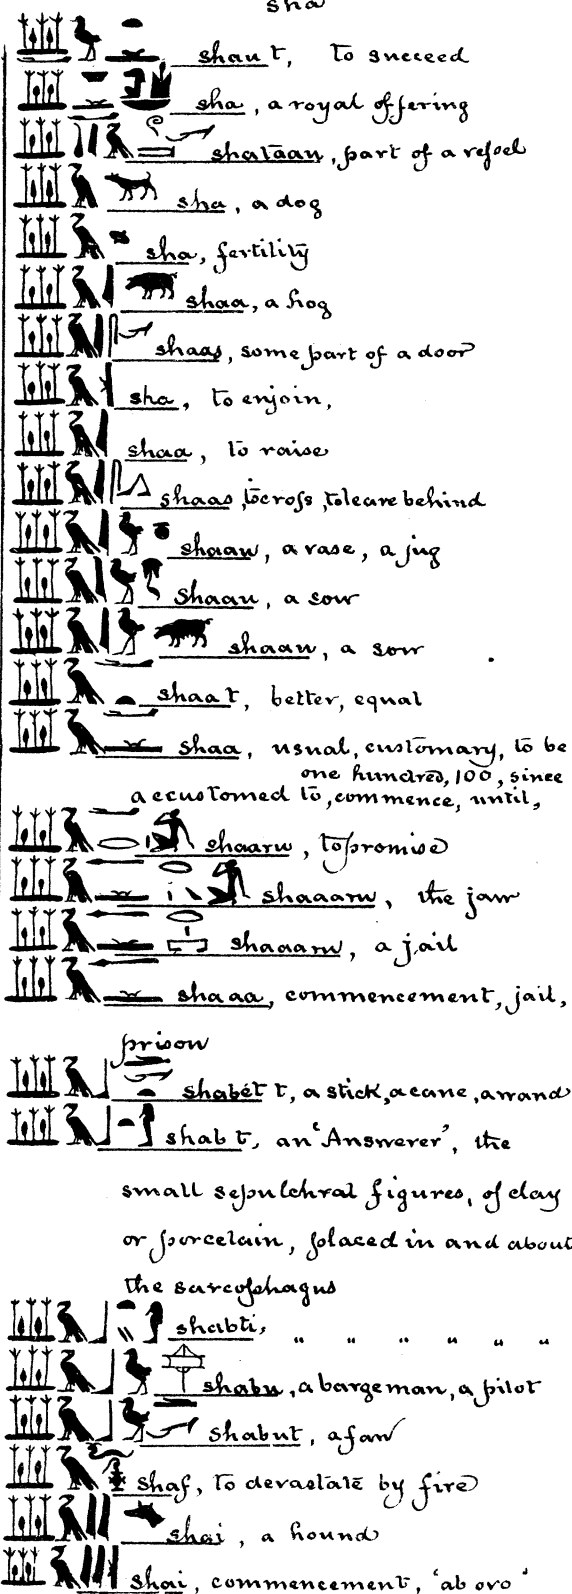 sha
shau t, to succeed
sha, a royal offering
shatāau, part of a vessel
sha, a dog
sha, fertility
shaa, a hog
shaas, some part of a door
sha, to enjoin,
shaa, to raise
shaas, to cross, to leave behind
shaau, a vase, a jug
shaau, a sow
shaau, a sow
shaa t, better, equal
shaa, usual, customary, to be
one hundred, 100, since
accustomed to, commence, until,
shaaru, to promise
shaaaru, the jaw
shaaaru, a jail
shaaa, commencement, jail,
prison
shabét t, a stick, a cane, a wand
shab t, an 'Answerer', the
small sepulchral figures, of clay
or porcelain, placed in and about
the sarcophagus
shabti, " " " " " "
shabu, a bargeman, a pilot
shabut, a fan
shaf, to devastate by fire
shai, a hound
shai, commencement, 'ab ovo'